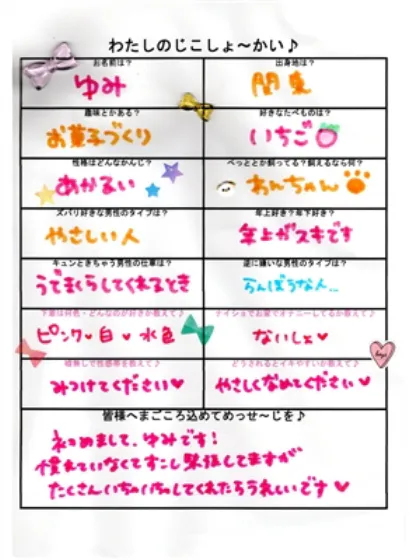 わたしのじこしょ〜かい♪
お名前は?
出身地は?
ゆみ
関東
趣味とかある?
好きなたべものは?
お菓子づくり
いちご
性格はどんなかんじ?
ぺっととか飼ってる?飼えるなら何?
あかるい
わんちゃん
ズバリ好きな男性のタイプは?
年上好き?年下好き?
やさしい人
年上がスキです
キュンときちゃう男性の仕草は?
逆に嫌いな男性のタイプは?
うでまくらしてくれるとき
らんぼうな人…
下着は何色・どんなのが好きか教えて♪
ピンク♥白♥水色
ないしょ♥
性感帯を教えて♪
どうされるとイキやすいか教えて♪
みつけてください♥
やさしくなめてください♥
皆様へまごころ込めてめっせ〜じを♪
はじめまして、ゆみです!
慣れていなくてすこし緊張してますが
たくさんいちゃいちゃしてくれたらうれしいです♥